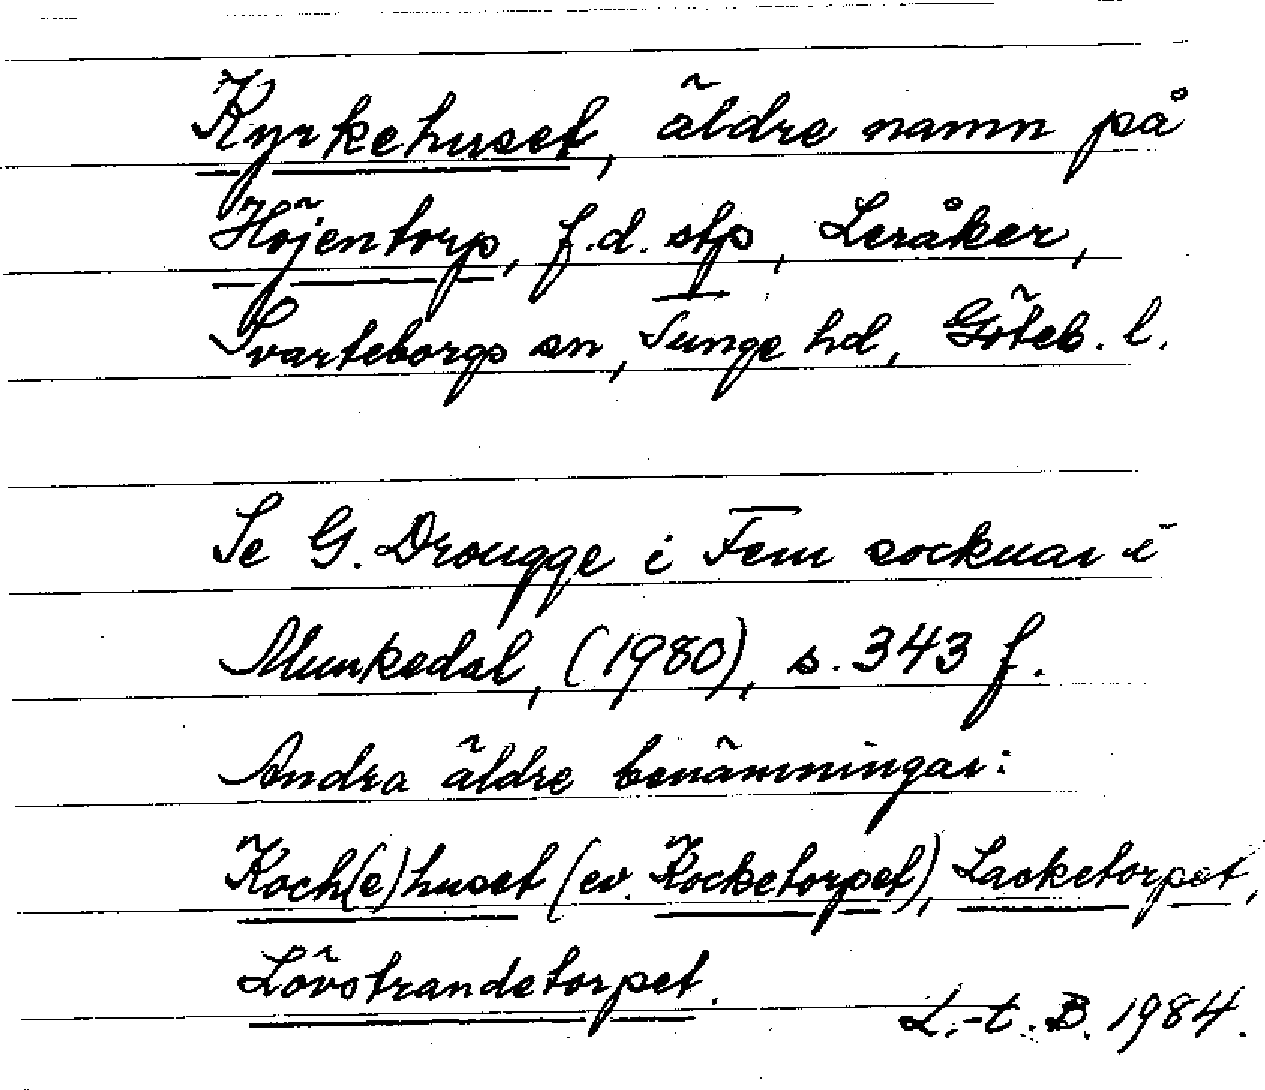 Kyrkehuset, äldre namn på
Höjentorp, f.d. stp, Leråker,
Svarteborgs sn, Tunge hd, Göteb. l.
Se G. Drougge i Fem socknar i
Munkedal, (1980), s. 343 f.
Andra äldre benämningar:
Koch(e)huset (ev. Kocketorpet), Lasketorpet,
Lövstrandetorpet.
L.-t. B. 1984.